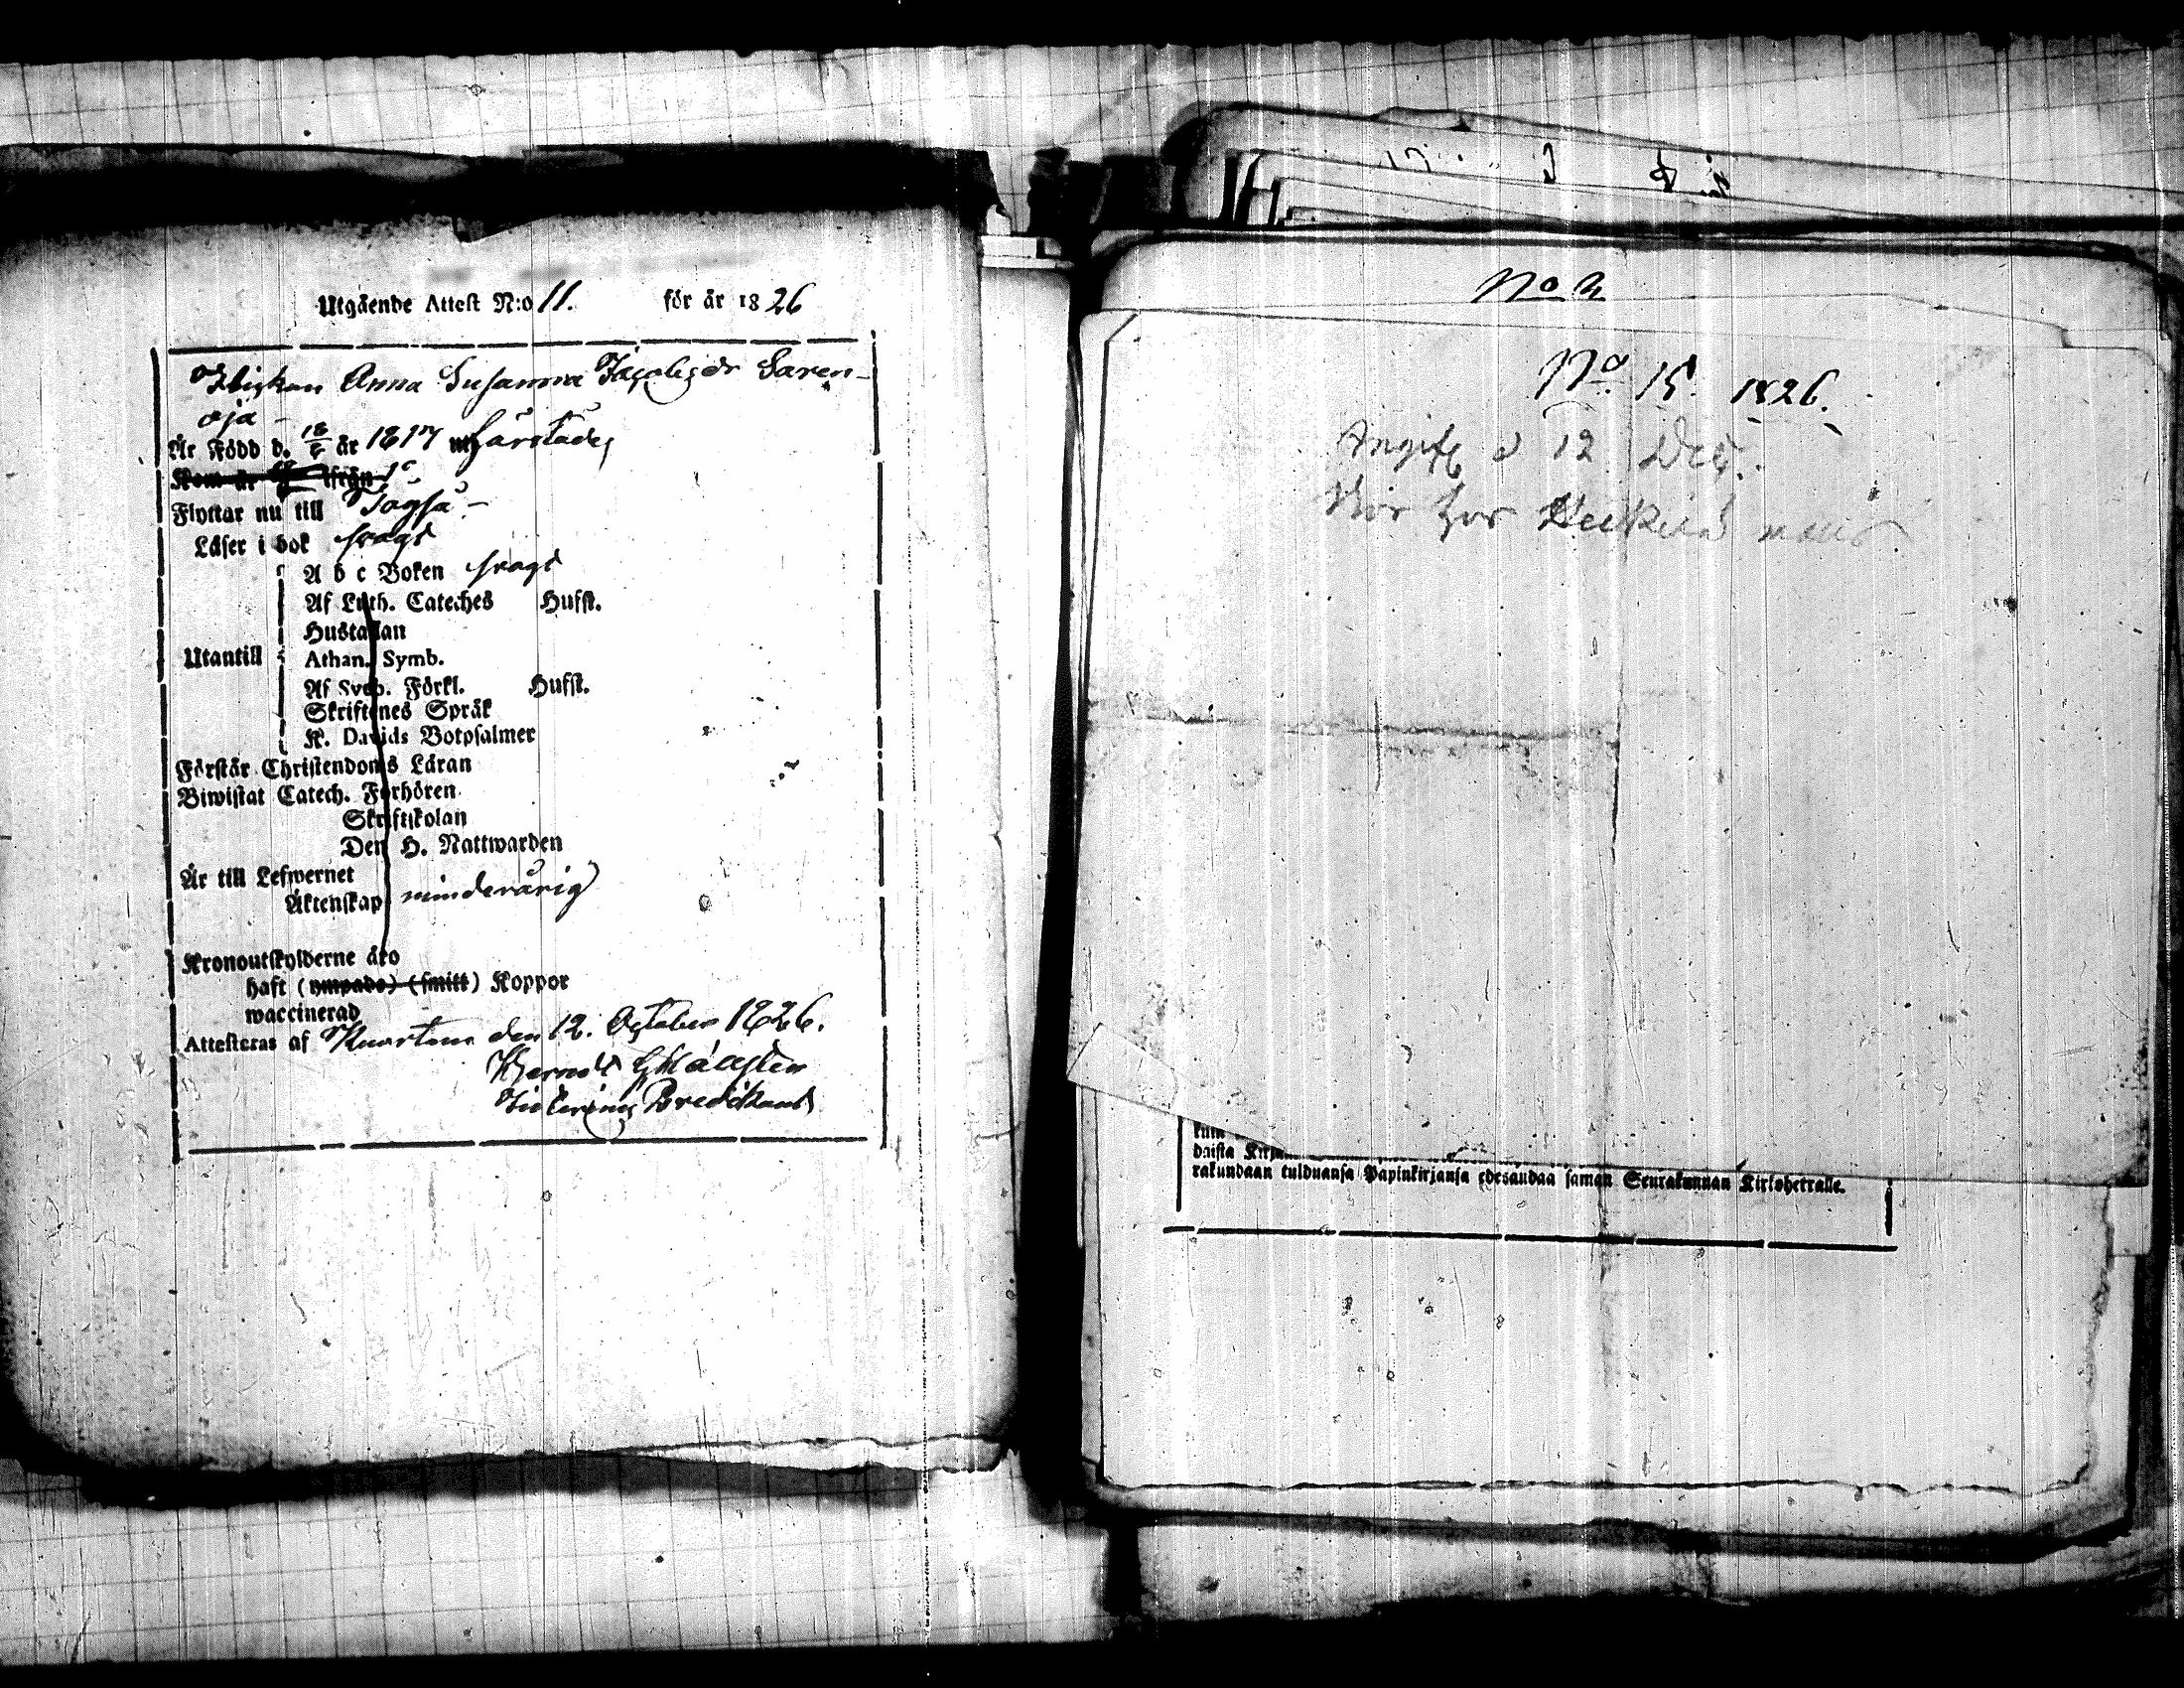 Utgående Attest N:o 11. för år 1826
Flickan Anna Susanna Jacobsdr Saren-
oja -
Är Född d. 18/6 år 1817 härstädes
Kom år ifrån
Flyttar nu till
Läser i bok svagt
A b c Boken svagt
Af Luth. Cateches Hufst.
Hustaflan
Utantill Athan. Symb.
Af Sveb. Förkl. Hufst.
Skriftenes Språk
K. Davids Botpsalmer
Förstår Christendoms Läran
Biwistat Catech. Förhören
Skriftskolan
Den H. Nattwarden
Är till Lefwernet
Äktenskap minderårig
Kronoutskylderne äro
haft (ympade) (smitt) Koppor
waccinerad
Attesteras af Kuortane den 12. October 1826.
Predikant
No
No 15. 1826.
d 12 Dec.
daista
rakundaan tulduansa Papinkirjansa edesandaa saman Seurakunnan Kirkoherralle.